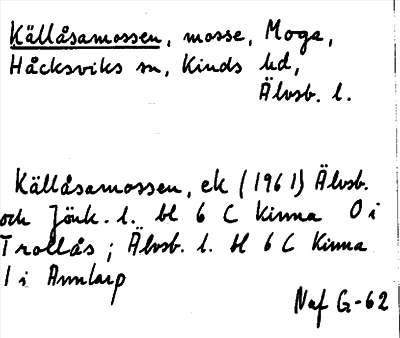 Källåsamossen, mosse, Moga,
Håcksviks sn, Kinds hd,
Älvsb. l.
Källåsamossen, ek (1961) Älvsb.
och Jönk. l. bl 6 C Kinna O i
Trollås; Älvsb. l. bl 6 C Kinna
l i Annlarp
Naf G-62